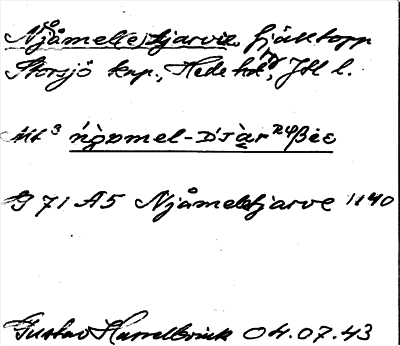 Njåmelletjarve, fjälltopp
Storsjö kap., Hede hd, Jtl l.
Ut³
G 71 A5 Njåmeltjarve 1140
Gustav Hasselbrink 04.07.43